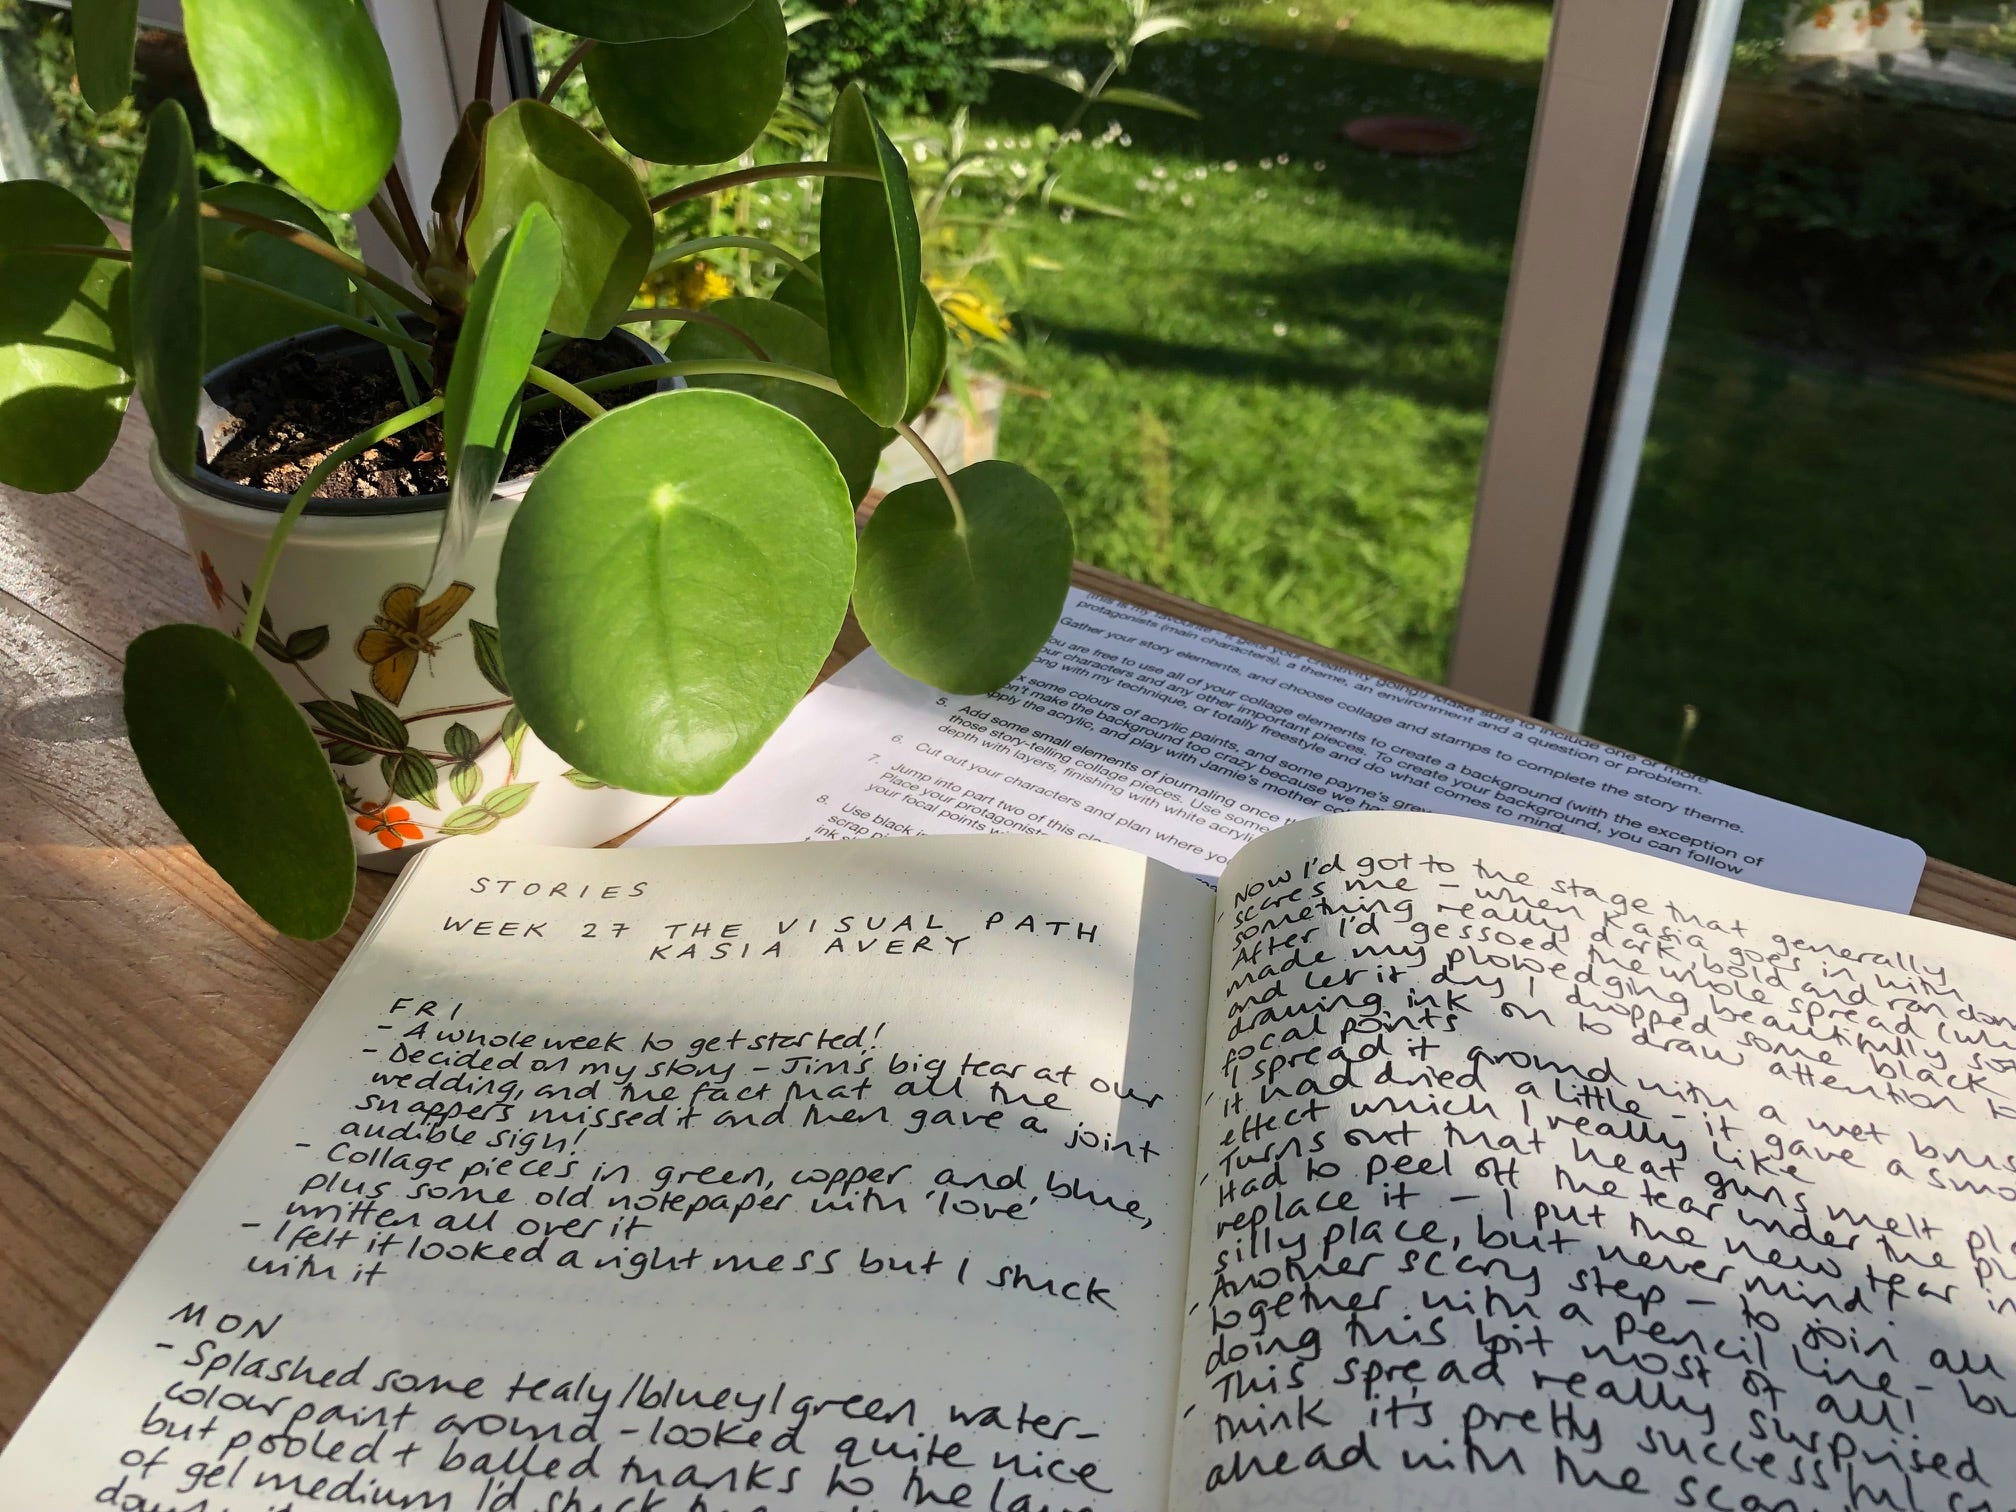 (this is my favourite - it gets your creativity going!) Make sure to include one or more
protagonists (main characters), a theme, an environment and a question or problem.
Gather your story elements, and choose collage and stamps to complete the story theme.
You are free to use all of your collage elements to create a background (with the exception of
your characters and any other important pieces. To create your background, you can follow
along with my technique, or totally freestyle and do what comes to mind.
some colours of acrylic paints, and some payne's grey
don't make the background too crazy because we
apply the acrylic, and play with Jamie's mother
5. Add some small elements of journaling once
those story-telling collage pieces. Use some
depth with layers, finishing with white
6. Cut out your characters and plan where
7. Jump into part two of this
Place your protagonists
your focal points
8. Use black
scrap
ink
STORIES
WEEK 27 THE VISUAL PATH
KASIA AVERY
FRI
- A whole week to get started!
- Decided on my story - Jim's big tear at our
wedding, and the fact that all the
snappers missed it and then gave a joint
audible sign!
- Collage pieces in green, copper and blue,
plus some old notepaper with 'love'
written all over it
- I felt it looked a right mess but I stuck
with it
MON
- Splashed some tealy/bluey/green water-
colour paint around - looked quite nice
but pooled + balled thanks to the
of gel medium I'd stuck
Now I'd got to the stage that generally
scares me - when Kasia goes in with
something really dark, bold and random
After I'd gessoed the whole spread
made my plowedging beautifully
and let it dry I dropped some black
drawing ink on to draw attention to
focal points
I spread it around with a wet
it had dried a little - it gave a
effect which I really like
Turns out that heat guns melt
Had to peel off the tear under the
replace it - I put the new tear in
silly place, but never mind!
Another scary step - to join all
together with a pencil line -
doing this bit most of all!
This spread really surprised
think it's pretty successful
ahead with the